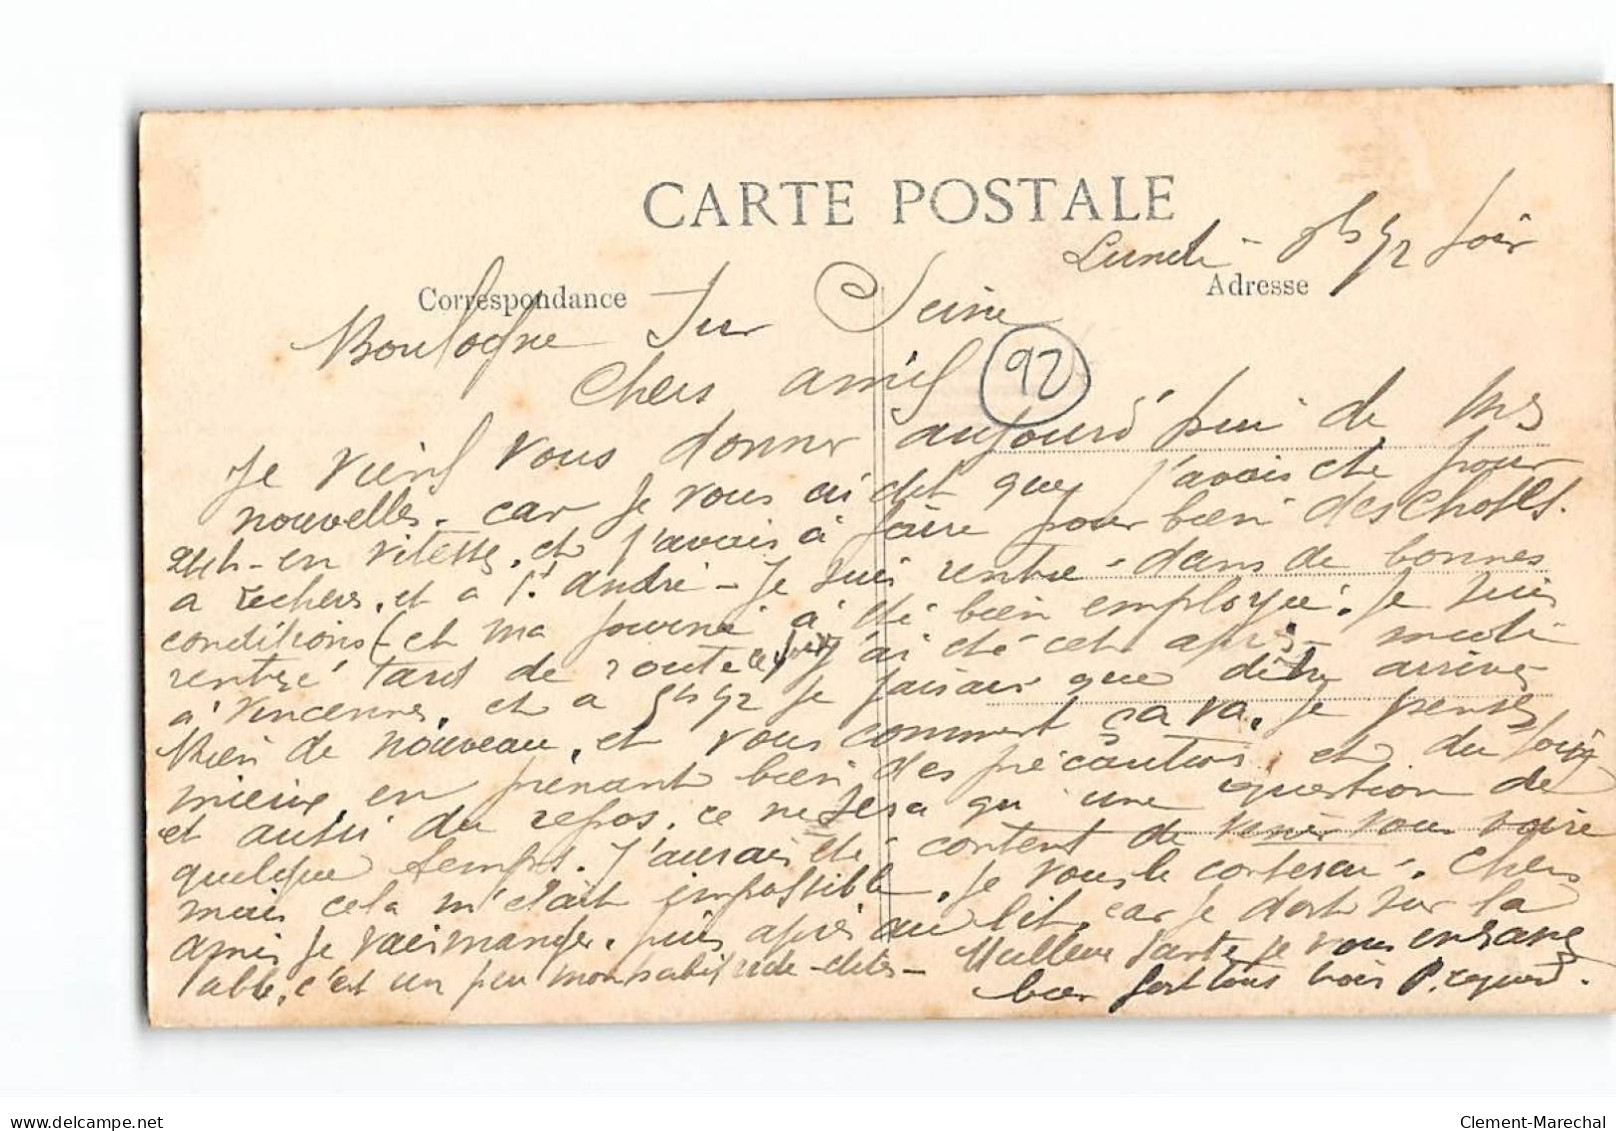 CARTE POSTALE
Lundi - soir
Correspondance
Adresse
Boulogne Sur Seine
92
Chers amis
Je viens vous donner aujourd'hui de mes
nouvelles. car je vous ai dit que j'avais été pour
24h - en vitesse, et j'avais à faire pour bien des choses.
a et a St andré - Je suis rentré - dans de bonnes
conditions (et ma journé à été bien employé. Je suis
rentré tard de route ce soir j'ai été cet après - midi
à Vincennes, et a 5h 1/2 je faisais que d'être arrivé
Rien de nouveau, et vous comment ça va. Je pense
mieux, en prenant bien des précautions et du soin
et aussi du repos. ce ne sera qu'une question de
quelque temps. J'aurais été content de venir vous voire
mais cela m'était impossible. Je vous le . Chers
amis Je vais manger. puis après au lit, car je dort sur la
table, c'est un peu mon habitude - dites - Meilleure Santé je vous embrasse
bien fort tous trois P.
delcampe.net
Clement-Marechal